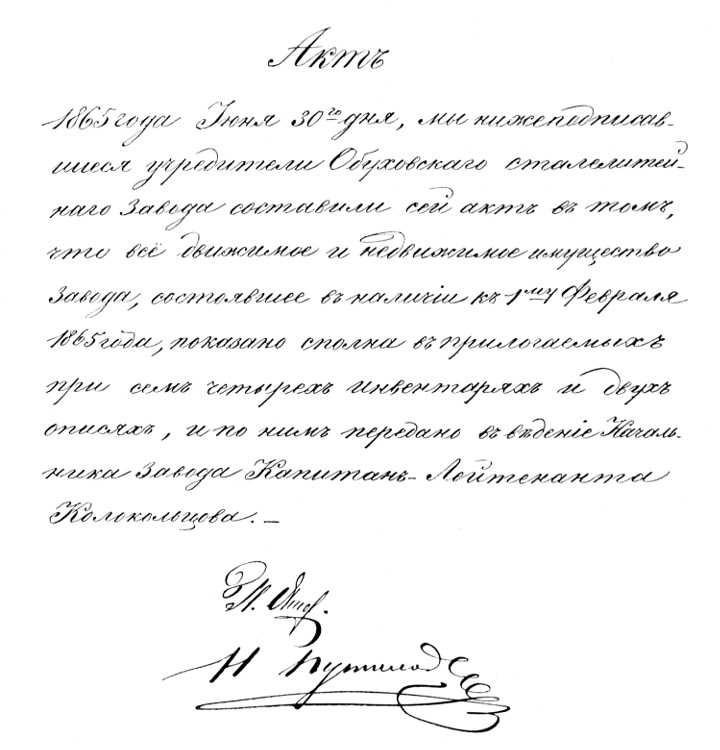 Актъ
1865 года Іюня 30го дня, мы нижеподписав-
шиеся учредители Обуховскаго сталелитей-
наго Завода составили сей актъ въ томъ,
что всё движимое и недвижимое имущество
Завода, состоявшее въ наличіи къ 1му Февраля
1865 года, показано сполна въ прилогаемыхъ
при семъ четырехъ инвентаряхъ и двухъ
описяхъ, и по нимъ передано въ въденіе Началь-
ника Завода Капитанъ-Лейтенанта
Колокольцова. —
Н Путилов